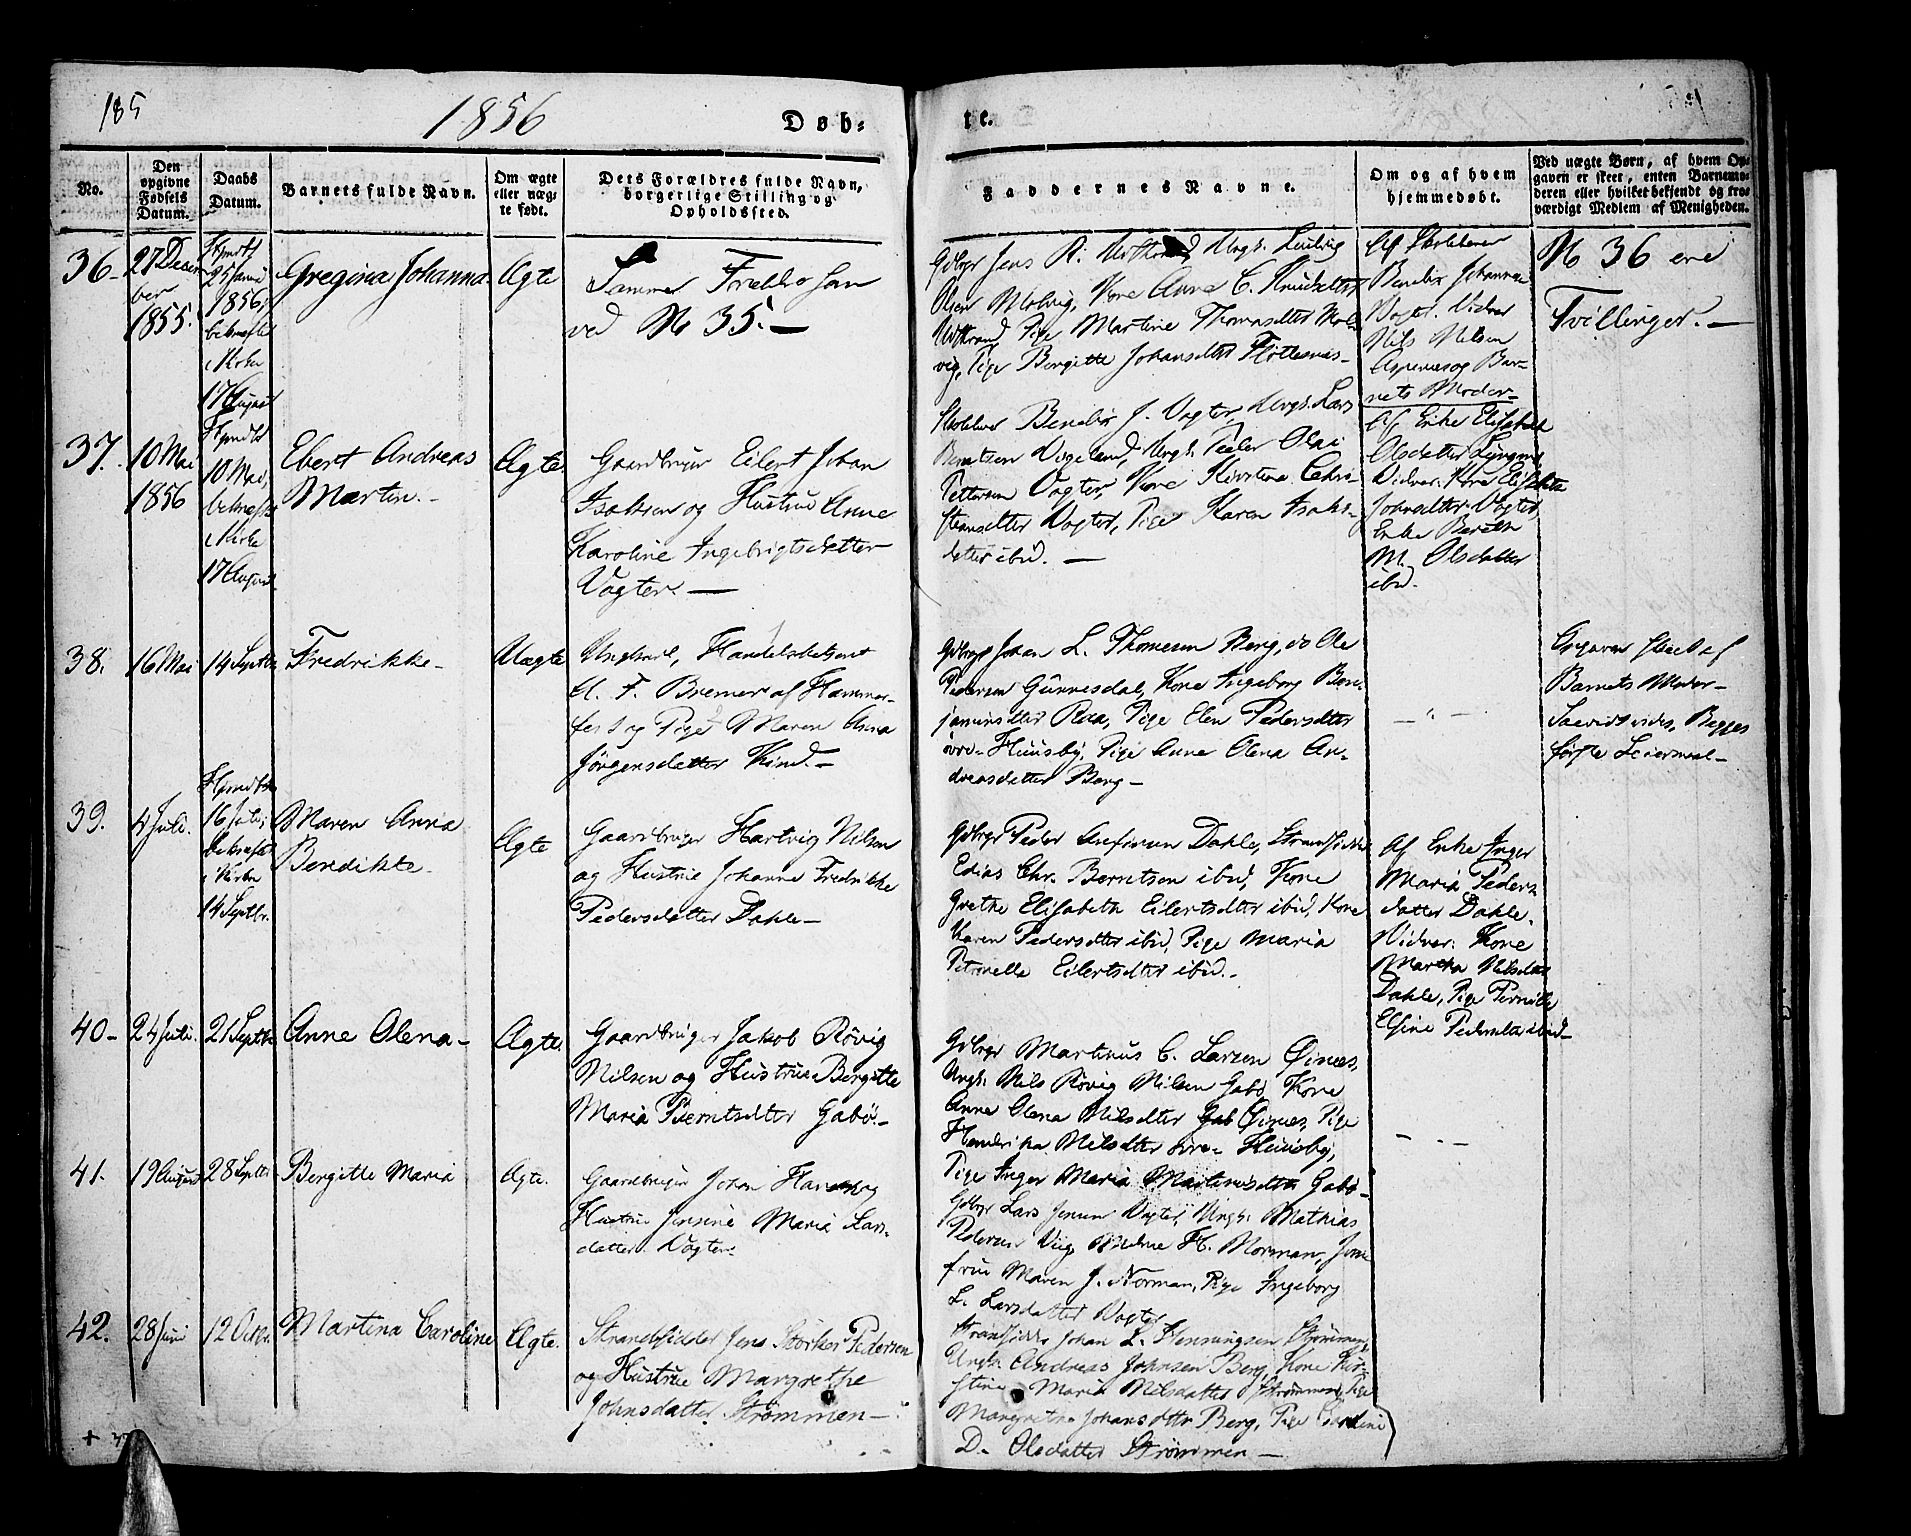 185
1856
Døb-
te.
No.
Den
opgivne
Fødsels
Datum.
Daabs
Datum.
Barnets fulde Navn.
Om ægte
eller uæg-
te født.
Dets Forældres fulde Navn,
borgerlige Stilling og
Opholdssted.
Faddernes Navne.
Om og af hvem
hjemmedøbt.
Ved uægte Børn, af hvem Op-
gaven er skeet, enten Barnemo-
deren eller hvilket bekjendt og tro-
værdigt Medlem af Menigheden.
36.
27 Decem
ber
1855.
Hjmdbt
25 Januar
1856,
bekræftet
i Kirke
17 August
Gregina Johanna.
Ægte
Samme Forældre som
ved No 35. —
Gdbrgr Jens R. Ungk. Ludvig
Olsen Molvig, Kone Anne C. Knudsdttr
Pige Martine Thomasdtter Mol-
vig, Pige Bergitte Johansdtter
Af Skolelærer
Benedix Johannes
Vogter. Vidner
Nils Nilsen
Aspenes og Bar-
nets Moder-
No 36 ere
Tvillinger. —
37.
10 Mai
1856
Hjmdbt
10 Mai,
bekræftet
i Kirke
17 August
Ebert Andreas
Martin. -
Ægte.
Gaardbruger Eilert Johan
Isaksen og Hustrue Anne
Karoline Ingebrigtsdatter
Vogter. —
Skolelærer Benedix J. Vogter, Ungk. Lars
Berntsen Vogeland, Ungk. Peder Olai
Pettersen Vogter, Kone Kirstine Chri-
stensdtter Vogter, Pige Karen Isaks-
datter ibid. —
Af Enke Elisabeth
Olsdatter
Vidner: Kone Elisabeth
Johnsdatter Vogter,
Enke Bereth
M. Olsdatter
ibid.
38.
16 Mai
14 Septbr
Fredrikke-
Uægte
Ungkarl, Handelsbetjent
F. Bremer af Hammer-
fest og Pige Maren Anna
Jörgensdatter Kind. -
Gdbrgr Johan L. Thomesen Berg, do Ole
Pedersen Gunnesdal, Kone Ingeborg Ben-
jaminsdtter Raa, Pige Elen Pedersdtter
övre-Huusby, Pige Anne Olena An-
dreasdatter Berg -
— " —
Opgaven skeet af
Barnets Moder -
Begges
første Leiermaal -
39.
4 Juli.
Hjmdbt
16 Juli,
bekræftet
i Kirke
14 Septbr.
Maren Anna
Benedikte.
Ægte
Gaardbruger Hartvig Nilsen
og Hustrue Johanne Fredrikke
Pedersdatter Dahle -
Gdbrgr Peder Dahle, Strandsidder
Edias Chr. Berntsen ibid, Kone
Grethe Elisabeth Eilertsdtter ibid, Kone
Karen Pedersdtter ibid, Pige Maria
Petronelle Eilertsdtter ibid. -
Af Enke Inger
Maria Peders-
datter Dahle.
Vidner: Kone
Martha Nilsdatter
Dahle, Pige Pernille
Elsine Pedersdatter ibid -
40 -
24 Juli.
21 Septbr
Anne Olena -
Ægte.
Gaardbruger Jakob Rövig
Nilsen og Hustrue Bergitte
Maria Berntsdtter Gabö. -
Gdbrgr Martinus C. Larsen Öines,
Ungk. Nils Rövig Nilsen Gabö, Kone
Anne Olena Nilsdtter Gab Öines, Pige
Hendrikha Nilsdtter övre- Huusby,
Pige Inger Maria Martinusdtter Gabö -
— " —
41.
19 August
28 Septbr
Bergitte Maria
Ægte.
Gaardbruger Johan Hansen og
Hustrue Jensine Maria Lars-
datter Vogter -
Gdbrgr Lars Jensen Vogter, Ungk. Mathias
Pedersen Viig, Md. H. Norman, Jom-
frue Maren J. Norman, Pige Ingeborg
L. Larsdatter Vogter
42.
28 Juni
12 Octbr.
Martina Caroline
Ægte.
Strandsidder Jens Störker Pedersen
og Hustrue Margrethe
Johnsdatter Strømmen -
Strandsidder Johan L. Henningsen Strömmen,
Ungk. Andreas Johnsen Berg, Kone Kir-
stine Maria Nilsdatter Strömmen, Pige
Margrethe Johansdttr Berg, Pige Caroline
D. Olsdatter Strömmen —